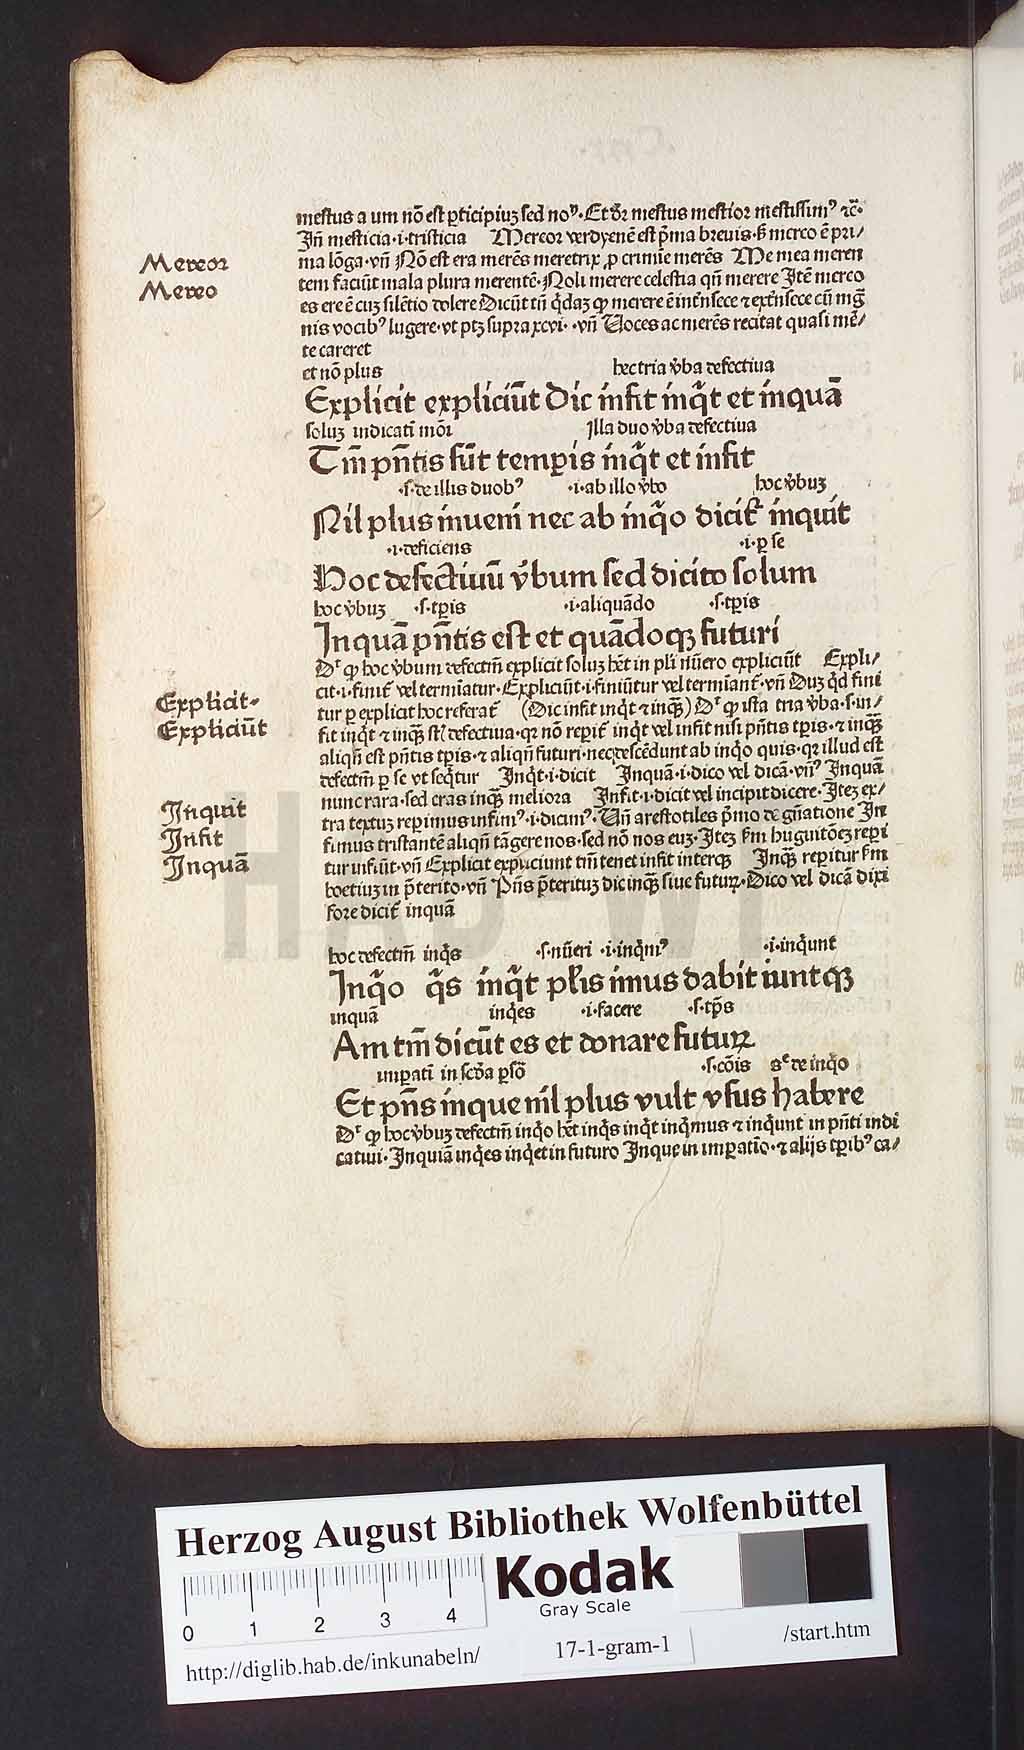 mestus a um nō est ꝑticipiuʒ sed noᵛ. Et dr̄ mestus mestior mestissimꝰ ⁊c̄.
Jn̄ mesticia .i. tristicia Mereor verdyenē est p̄ma breuis. ſʒ mereo ē pri/
ma lōga. vn̄ Nō est era merēs meretrix ꝓ crimīe merēs Me mea meren
tem faciūt mala plura merentē. Noli merere celestia qn̄ merere Jtē mereo
es ere ē cuʒ silētio dolere Dicūt tn̄ q̇daʒ ꝙ merere ē intn̄sece ⁊ extn̄sece cū mḡ
nis vocibꝰ lugere. vt ptʒ supra xcvi. .vn̄ Uoces ac merēs recitat quasi mē/
te careret
et nō plus hec tria v̄ba defectiua
Explicit expliciūt Dic infit inq̄t et inquā
soluʒ indicati mōi Jlla duo v̄ba defectiua
Tm̄ pn̄tis sūt temꝑis inq̄t et infit
.s. de illis duobꝰ .i. ab illo v̄bo hoc v̄buʒ
Nil plus inueni nec ab inq̄o dicit᷑ inquit
.i. deficiens .i. ꝑ se
Hoc defectiuū v̄bum sed dicito solum
hoc v̄buʒ .s. tꝑis .i. aliquādo .s. tꝑis
Jnquā pn̄tis est et quādoqꝫ futuri
Dʳ ꝙ hoc v̄bum defectm̄ explicit soluʒ hēt in pli nūero expliciūt Expli/
cit .i. finit᷑ vel termīatur. Expliciūt .i. finiūtur vel termīant᷑. vn̄ Duʒ q̇d fini
tur ꝑ explicit hoc referat᷑ (Dic infit inq̄t ⁊ inqꝫ) Dʳ ꝙ ista tria v̄ba .s. in/
fit inq̄t ⁊ inqꝫ st̄ defectiua. qꝛ nō reꝑit᷑ inq̄t vel infit nisi pn̄tis tꝑis. ⁊ inqꝫ
aliqn̄ est pn̄tis tꝑis. ⁊ aliqn̄ futuri. nec descēdunt ab inq̄o quis. qꝛ illud est
defectm̄ ꝑ se vt seq̄tur Jnq̄t .i. dicit Jnquā .i. dico vel dicā. vn̄ꝰ Jnquā
nunc rara. sed cras inqꝫ meliora Jnfit .i. dicit vel incipit dicere. Jteʒ ex/
tra textuʒ reꝑimus infimꝰ .i. dicimꝰ. Un̄ arestotiles p̄mo de gn̄atione Jn
fimus tristantē aliqn̄ tāgere nos. sed nō nos euʒ. Jteʒ ẜm huguitōeʒ reꝑi
tur infiūt. vn̄ Explicit expliciunt tm̄ tenet infit interqꝫ Jnqꝫ reꝑitur ẜm
boetiuʒ in p̄terito. vn̄ Pn̄s p̄terituʒ dic inqꝫ siue futuꝝ. Dico vel dicā dixi
fore dicit᷑ inquā
hoc defectm̄ inq̇s .s. nūeri .i. inq̇mꝰ .i. inq̇unt
Jnq̄o q̄s inq̄t pl̄is imus dabit iuntqꝫ
inquā inq̇es .i. facere .s. tp̄s
Am tm̄ dicūt es et donare futuꝝ
imꝑati in scd̄a ꝑsō .s. cōis sᵉ de inq̇o
Et pn̄s inque nil plus vult vsus habere
Dʳ ꝙ hoc v̄buʒ defectm̄ inq̇o hēt inq̇s inq̇t inq̇mus ⁊ inq̇unt in pn̄ti indi
catiui. Jnquiā inq̇es inq̇et in futuro Jnque in imꝑatīo. ⁊ alijs tꝑibꝰ ca/
Mereor
Mereo
Explicit.
Expliciūt
Jnquit
Jnfit
Jnquā
HAB-WF
Herzog August Bibliothek Wolfenbüttel
Kodak
Gray Scale
0 1 2 3 4
http://diglib.hab.de/inkunabeln/
17-1-gram-1
/start.htm